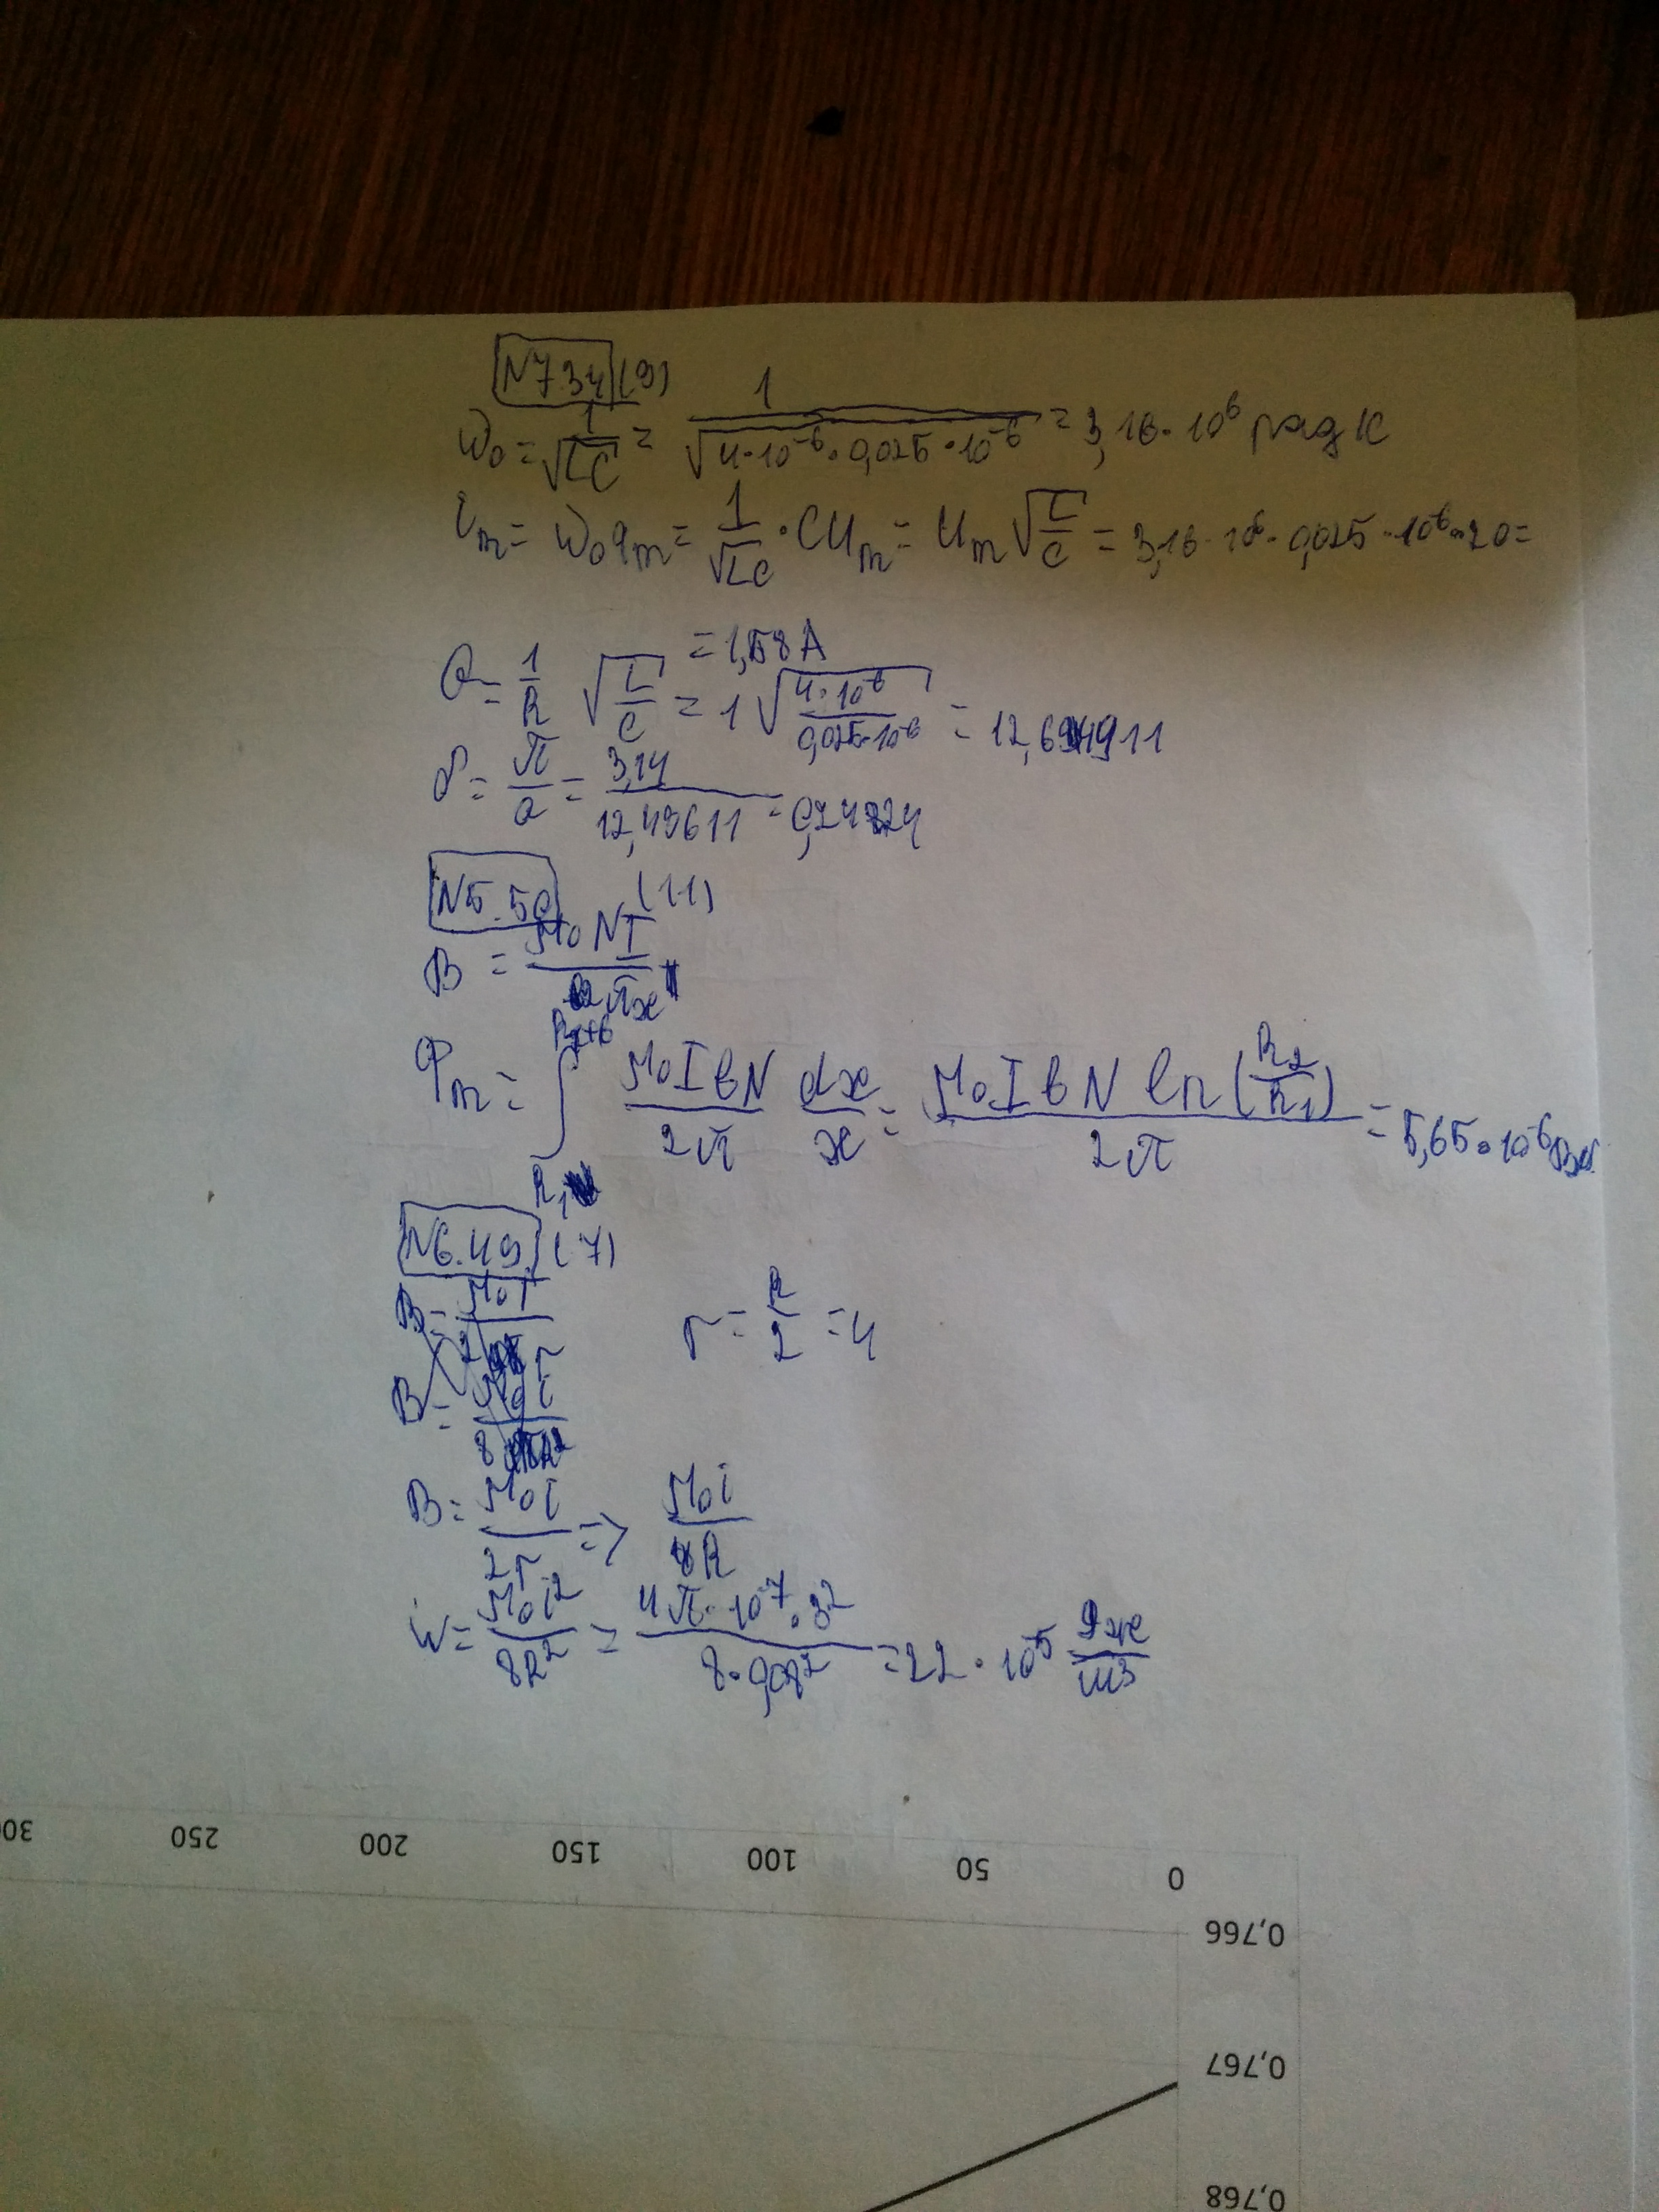 N7.34 (9)
ω₀ = 1/√LC = 1/√(4·10⁻⁶·0,025·10⁻⁶) = 3,16·10⁶ рад/с
i_m = ω₀q_m = 1/√LC · CU_m = U_m √(L/C) = 3,16·10⁶·0,025·10⁻⁶·20 =
= 1,58 A
Q = 1/R √(L/C) = 1 √(4·10⁻⁶/0,025·10⁻⁶) =
δ = π/Q = 3,14/12,49611 =
N5.50 (11)
B = μ₀NI/2πx
Φ_m = ∫ μ₀IbN/2π dx/x = μ₀IbN ln(R₂/R₁)/2π = 5,65·10⁻⁶ Вб
N6.49 (7)
r = R/2 = 4
B = μ₀i/2r => μ₀i/8R
W = μ₀i²/8R² = 4π·10⁻⁷·3²/8·0,08² = 22·10⁻⁵ Дж/м³
300 250 200 150 100 50 0
0,766
0,767
0,768